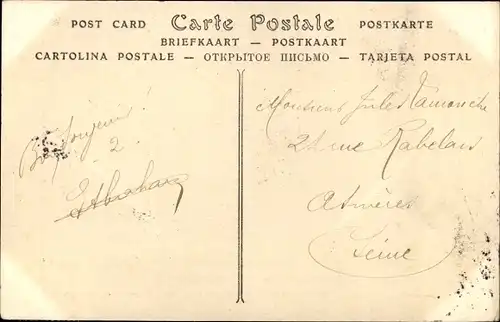 POST CARD Carte Postale POSTKARTE
BRIEFKAART — POSTKAART
CARTOLINA POSTALE — ОТКРЫТОЕ ПИСЬМО — TARJETA POSTAL
2
Monsieur Jules
21 rue Rabelais
Asnières
Seine